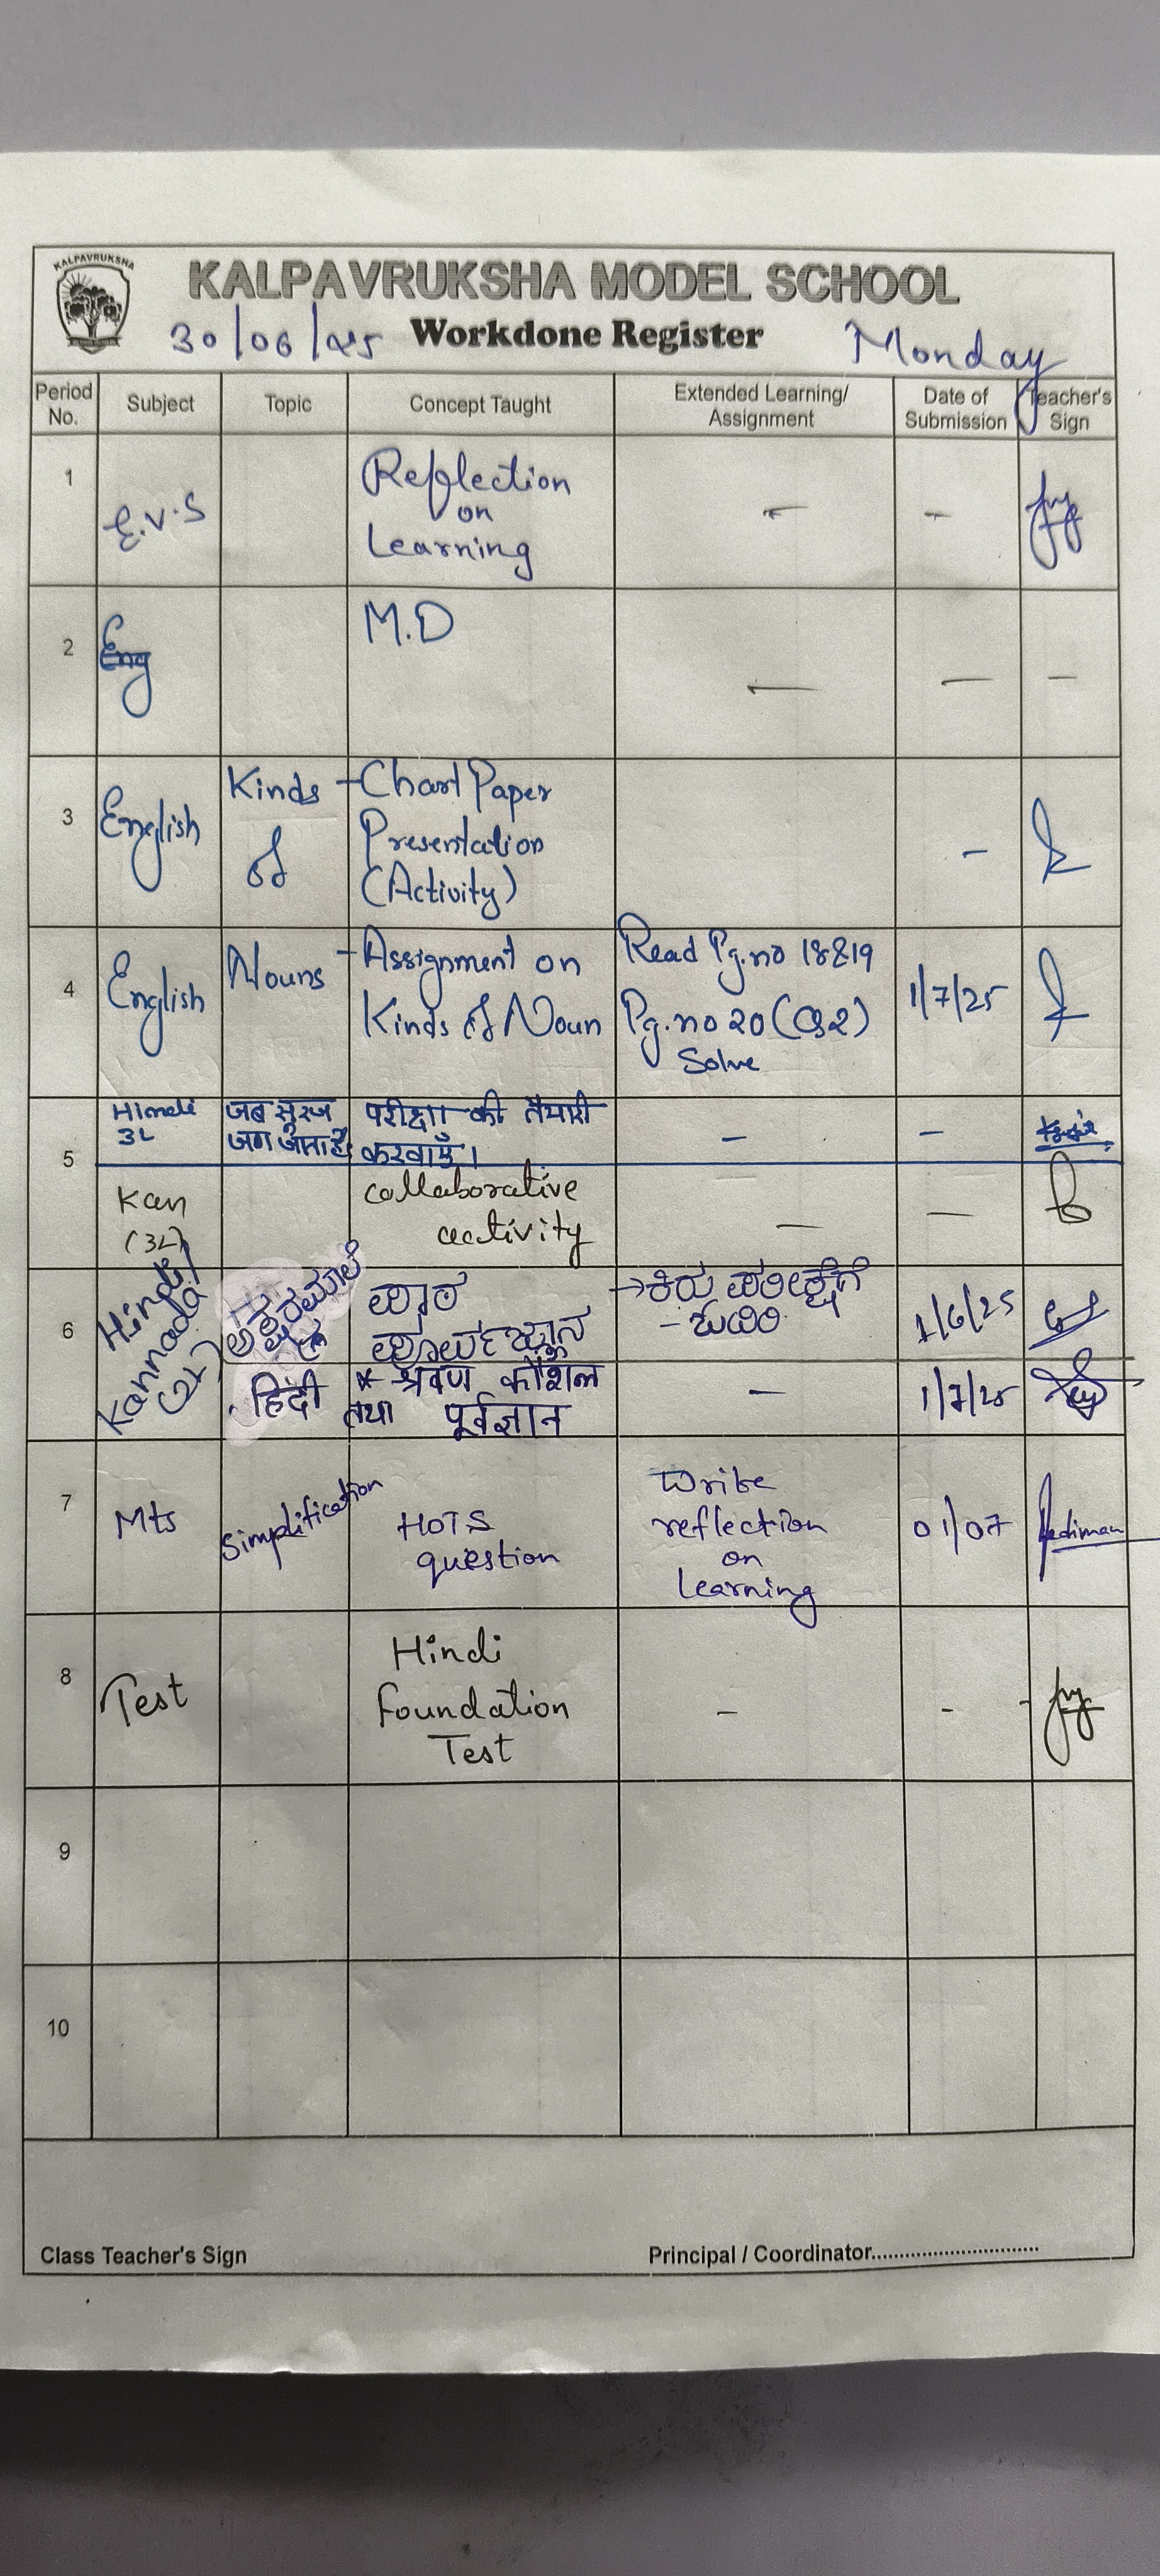 KALPAVRUKSHA
KALPAVRUKSHA MODEL SCHOOL
30/06/25 Workdone Register Monday
Period No. Subject Topic Concept Taught Extended Learning/ Assignment Date of Submission Teacher's Sign
1 E.V.S Reflection on Learning - -
2 Eng M.D - - -
3 English Kinds of - Chart Paper Presentation (Activity) -
4 English Nouns - Assignment on Kinds of Noun Read Pg.no 18&19 Pg.no 20 (Q2) Solve 1/7/25
5 Hindi 3L जब सूरज जग जाता है परीक्षा की तैयारी करवाएँ। - -
Kan (3L) collaborative activity - -
6 Hindi/ Kannada (2L) ಪಾಠ ಪೂರ್ವಜ್ಞಾನ → ಕಿರು ಪರೀಕ್ಷೆಗೆ - 1/6/25
हिंदी * श्रवण कौशल तथा पूर्वज्ञान - 1/7/25
7 Mts Simplification HOTS question Write reflection on Learning 01/07
8 Test Hindi Foundation Test - -
9
10
Class Teacher's Sign Principal / Coordinator